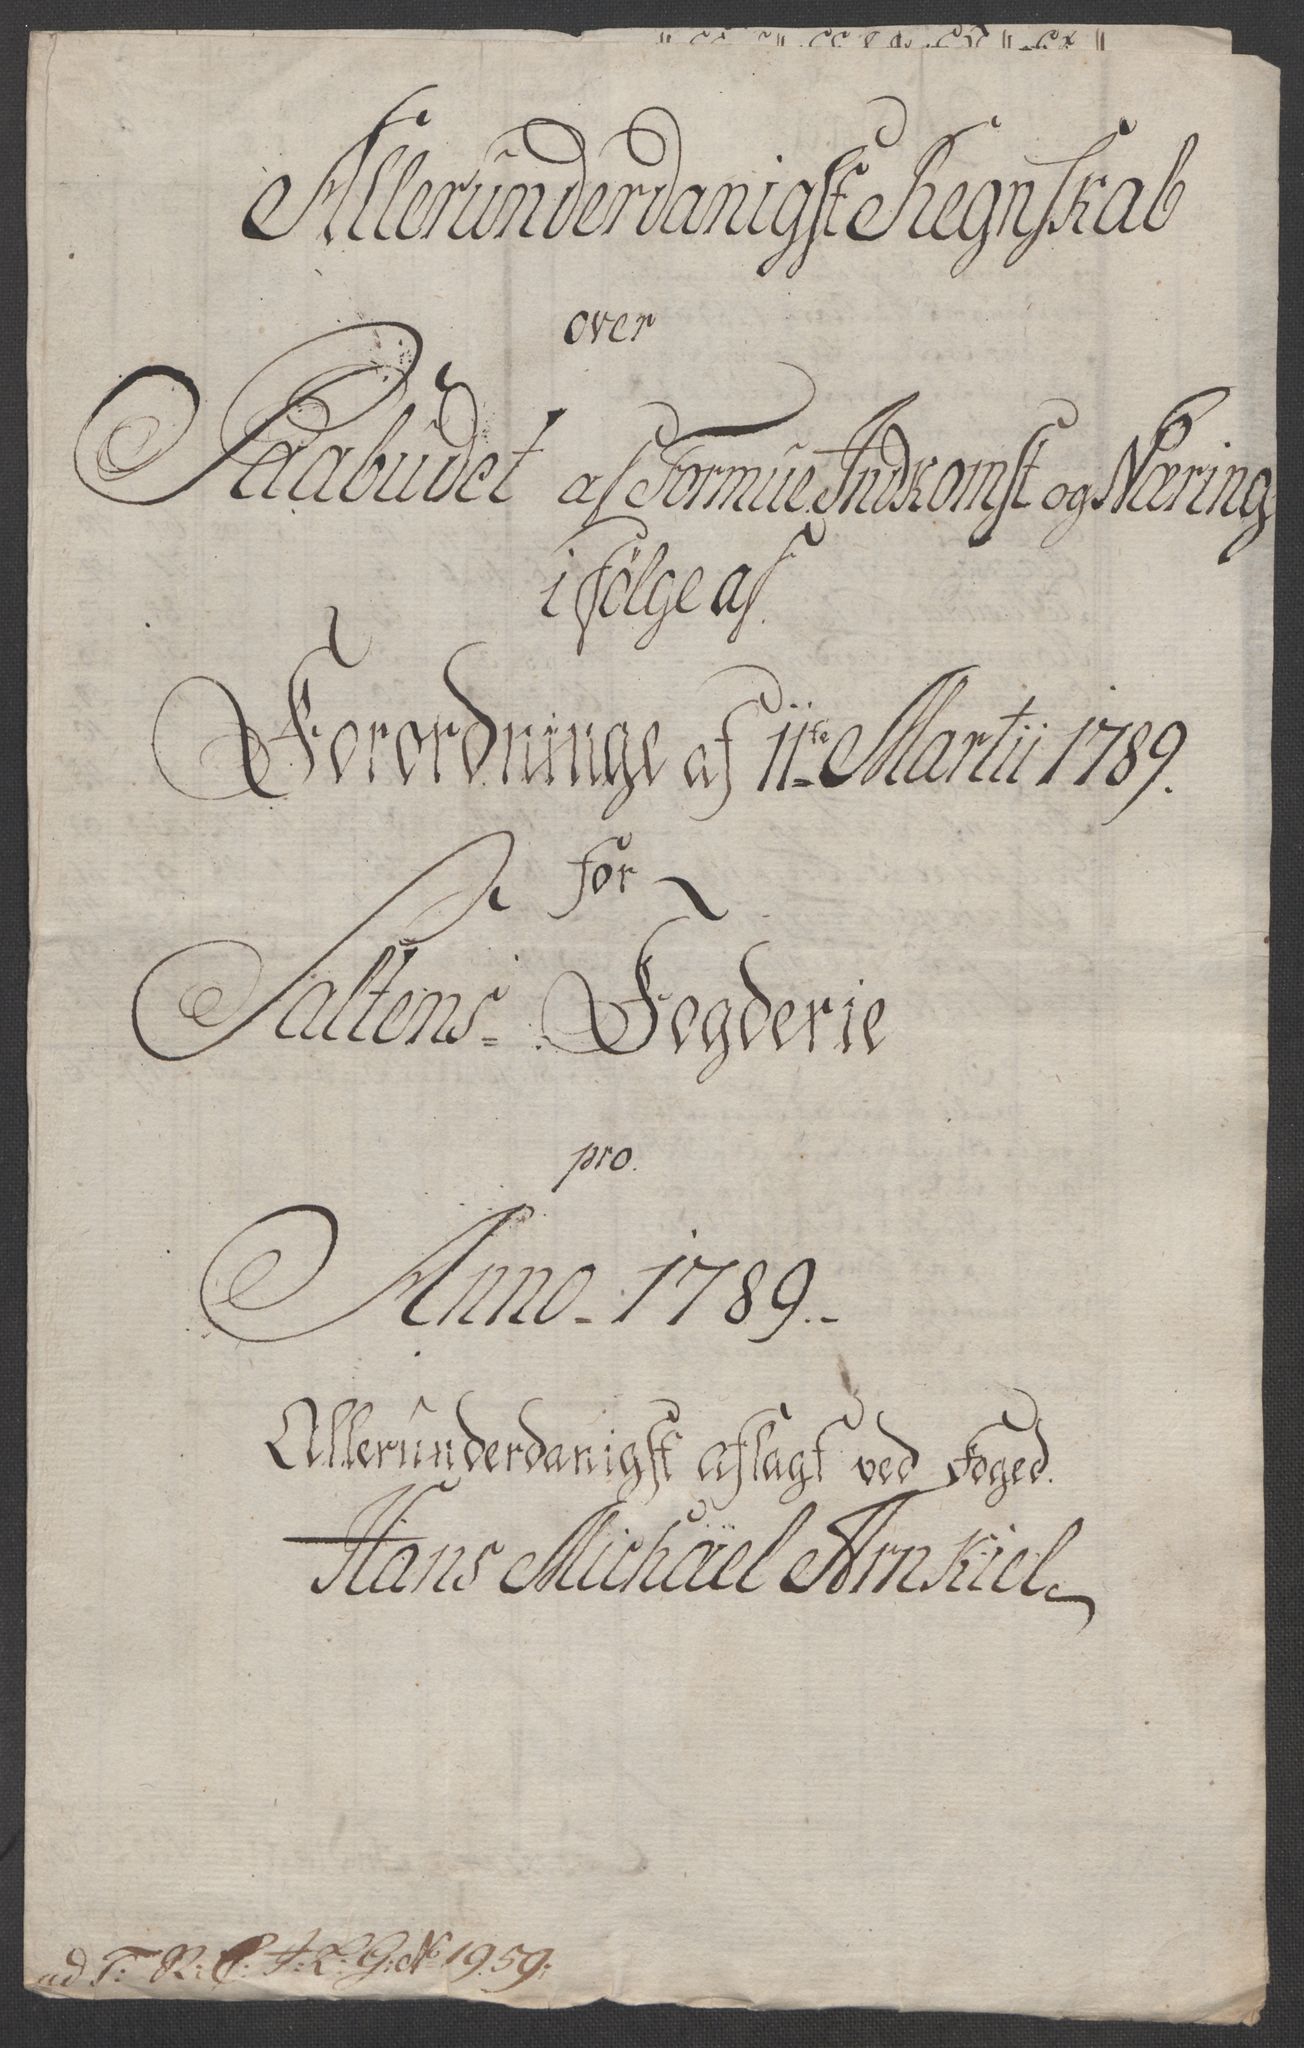 Alleründerdanigst Regnskab
over
Paabüdet af Formüe, Indkomst og Næring
i følge af
Forordninge af 11te Martii 1789.
for
Saltens Fogderie
pro.
Anno 1789.
Alleründerdanigst aflagt ved Foged.
Hans Michael Arnkiel
ad T: R: C: F: L: G: No 1959: